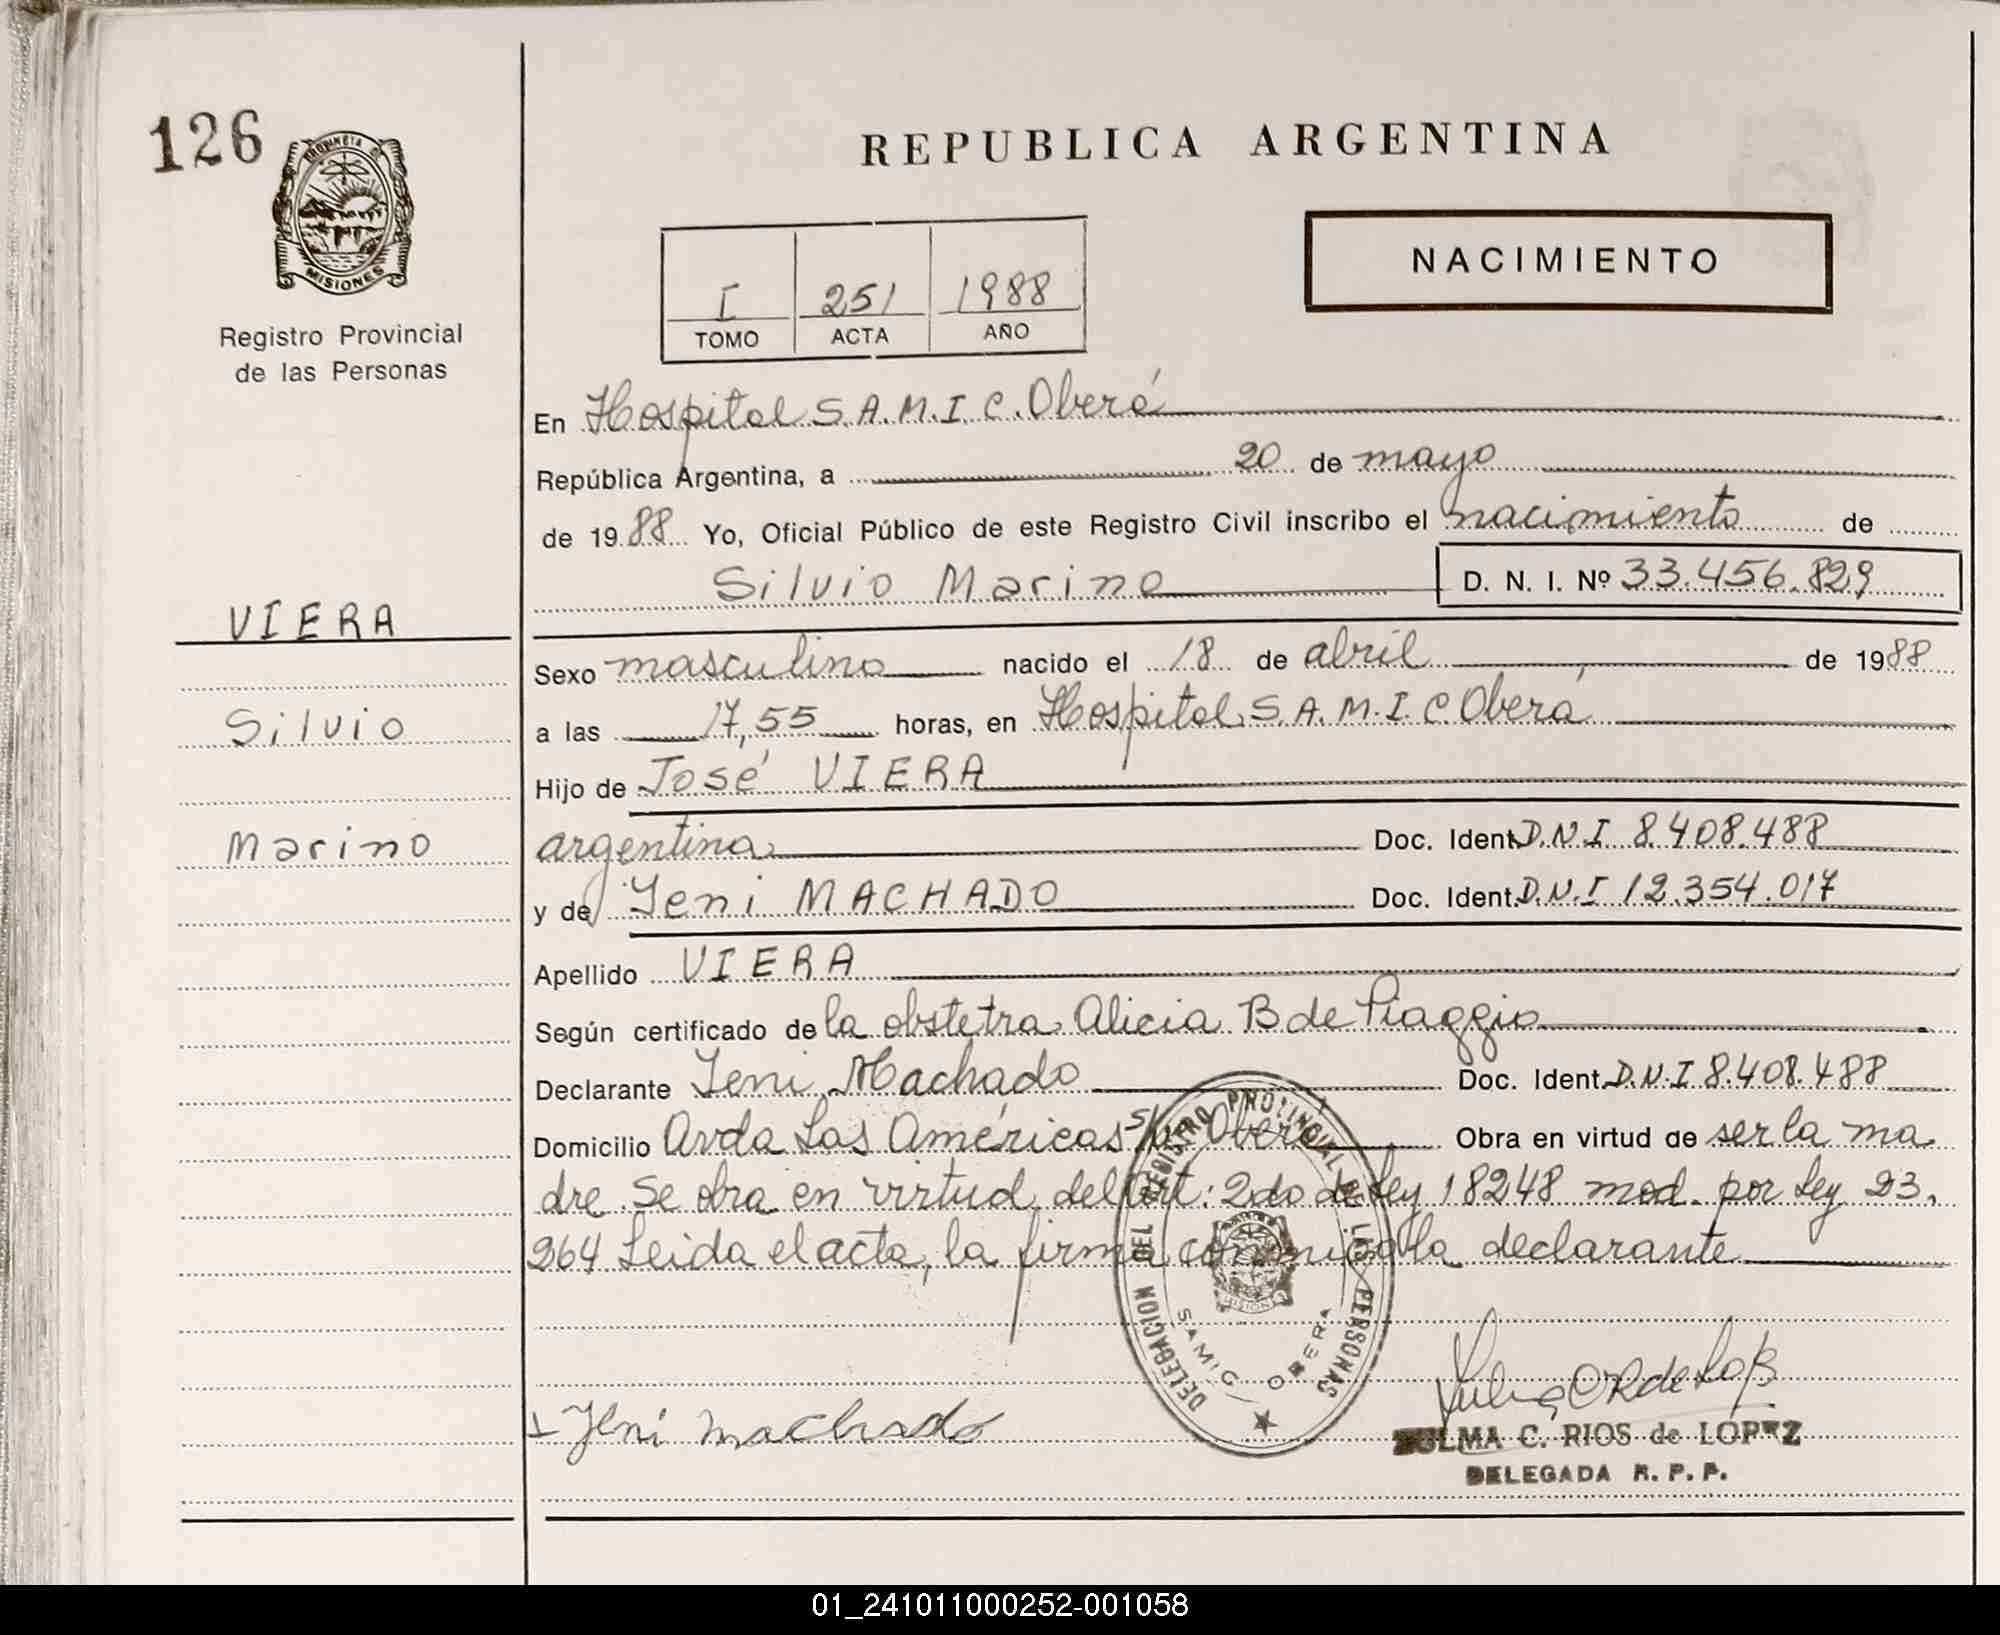 126
PROVINCIA DE
MISIONES
Registro Provincial
de las Personas
VIERA
Silvio
Marino
REPUBLICA ARGENTINA
NACIMIENTO
I 251 1988
TOMO ACTA AÑO
En Hospital S.A.M.I.C. Oberá
República Argentina, a 20 de mayo
de 1988 Yo, Oficial Público de este Registro Civil inscribo el nacimiento de
Silvio Marino D. N. I. Nº 33.456.829
Sexo masculino nacido el 18 de abril de 1988
a las 17,55 horas, en Hospital S.A.M.I.C Oberá
Hijo de José VIERA
argentina Doc. Ident. D.N.I 8.408.488
y de Jeni MACHADO Doc. Ident. D.N.I 12.354.017
Apellido VIERA
Según certificado de la obstetra Alicia B de Piaggio
Declarante Jeni Machado Doc. Ident. D.N.I 8.408.488
Domicilio Avda Las Américas s/n Oberá Obra en virtud de ser la ma
dre. Se obra en virtud del Art: 2do de Ley 18248 mod. por Ley 23.
264 Leida el acta, la firma conmigo la declarante
DELEGACION DEL REGISTRO PROVINCIAL DE LAS PERSONAS
SAMIC OBERA
MISIONES
Jeni machado
ZULMA C. RIOS de LOPEZ
DELEGADA R. P. P.
01_241011000252-001058